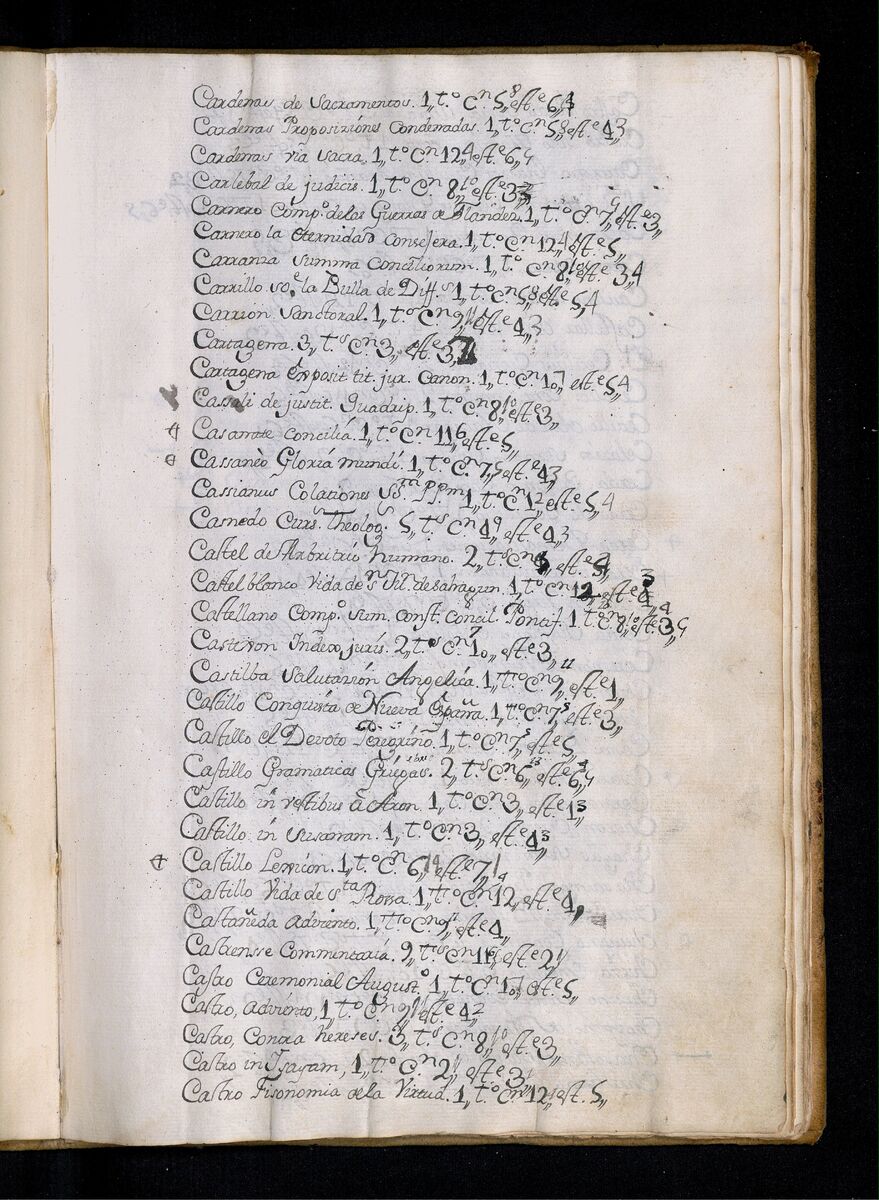 Cardenas de Sacramentos. 1,, t.º C.n 5,, 8 est.e 6,,
Cardenas Proposiziones Condenadas. 1,, t.º C.n 5,, 8 est.e 4,, 3
Cardenas via Sacra. 1,, t.º C.n 12,, 4 est.e 6,, 4
Carlebal de judicis. 1,, t.º C.n 8,, 10 est.e 3,,
Carnero Comp.º de las Guerras de Flandez. 1,, t.º C.n 7,, est.e 3,,
Carnero la eternidad consejera. 1,, t.º C.n 12,, 4 est.e 5,,
Carranza Summa Conciliorum. 1,, t.º C.n 8,, 10 est.e 3,, 4
Carrillo so.e la Bulla de Diff.s 1,, t.º C.n 5,, 8 est.e 5,, 4
Carrion Sanctoral. 1,, t.º C.n 9,, 11 est.e 4,, 3
Cartagena. 3,, t.s C.n 3,, est.e 3,,
Cartagena exposit. tit. jur. Canon. 1,, t.º C.n 10,, 7 est.e 5,, 4
Cassali de justit. Quadrip. 1,, t.º C.n 8,, 10 est.e 3,,
Casarrate Concilia. 1,, t.º C.n 11,, 6 est.e 5,,
Cassanèo Gloria mundi. 1,, t.º C.n 7,, 5 est.e 4,, 3
Cassianus Colationes SS.m PP.m 1,, t.º C.n 1,, 2 est.e 5,, 4
Casnedo Curs. Theolog. 5,, t.s C.n 4,, 9 est.e 4,, 3
Castel de Arbritrio humano. 2,, t.s C.n est.e
Castel blanco Vida de S.n Jn. de Sahagun. 1,, t.º C.n 12,, est.e 4,, 3
Castellano Comp.º sum. const. concil. Pontif. 1 t.º C.n 8,, 10 est.e 3,, 4
Castejon Index juris. 2,, t.s C.n 10,, 7 est.e 3,,
Castilba Salutazion Angelica. 1,, t.º C.n 9,, 11 est.e 1,,
Castillo Conquista de Nueva España. 1,, t.º C.n 7,, 5 est.e 3,,
Castillo el Devoto Peregrino. 1,, t.º C.n 7,, 5 est.e 5,,
Castillo Gramaticas Griegas. 2,, t.s C.n 6,, 13 est.e 6,, 4
Castillo in vestibus Aron. 1,, t.º C.n 3,, est.e 1,, 3
Castillo. in Susannam. 1,, t.º C.n 3,, est.e 4,, 3
Castillo Lexicon. 1,, t.º C.n 6,, 14 est.e 7,, 4
Castillo Vida de S.ta Rossa. 1,, t.º C.n 12,, est.e 4,,
Castañeda Adviento. 1,, t.º C.n 9,, 11 est.e 4,,
Castrensse Commentaria. 9,, t.s C.n est.e 2,,
Castro Ceremonial August.º 1,, t.º C.n 10,, 7 est.e 5,,
Castro, Adviento, 1,, t.º C.n 9,, 11 est.e 4,, 2
Castro, Contra hereses. 3,, t.s C.n 8,, 10 est.e 3,,
Castro in Isayam, 1,, t.º C.n 2,, est.e 3,,
Castro Fisonomia de la Virtud. 1,, t.º C.n 12,, est.e 5,,